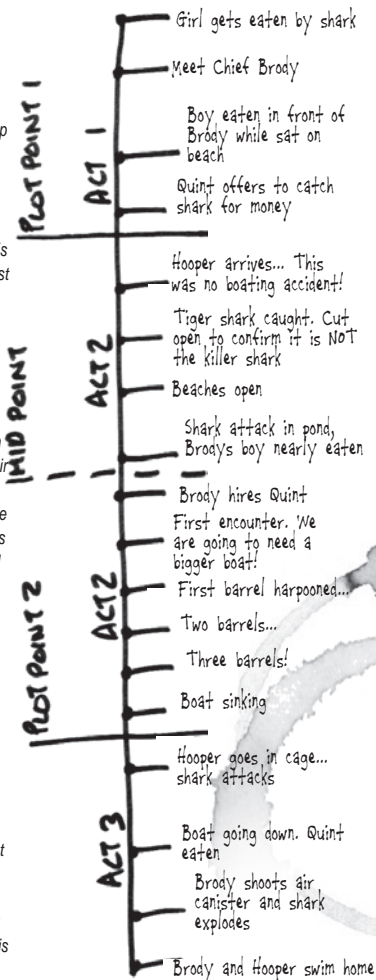 Girl gets eaten by shark
Meet Chief Brody
Boy eaten in front of
Brody while sat on
beach
Quint offers to catch
shark for money
PLOT POINT 1
ACT 1
Hooper arrives... This
was no boating accident!
Tiger shark caught. Cut
open to confirm it is NOT
the killer shark
Beaches open
Shark attack in pond,
Brody's boy nearly eaten
MID POINT
ACT 2
Brody hires Quint
First encounter. 'We
are going to need a
bigger boat!
First barrel harpooned...
Two barrels...
Three barrels!
Boat sinking
PLOT POINT 2
ACT 2
Hooper goes in cage...
shark attacks
Boat going down. Quint
eaten
Brody shoots air
canister and shark
explodes
Brody and Hooper swim home
ACT 3